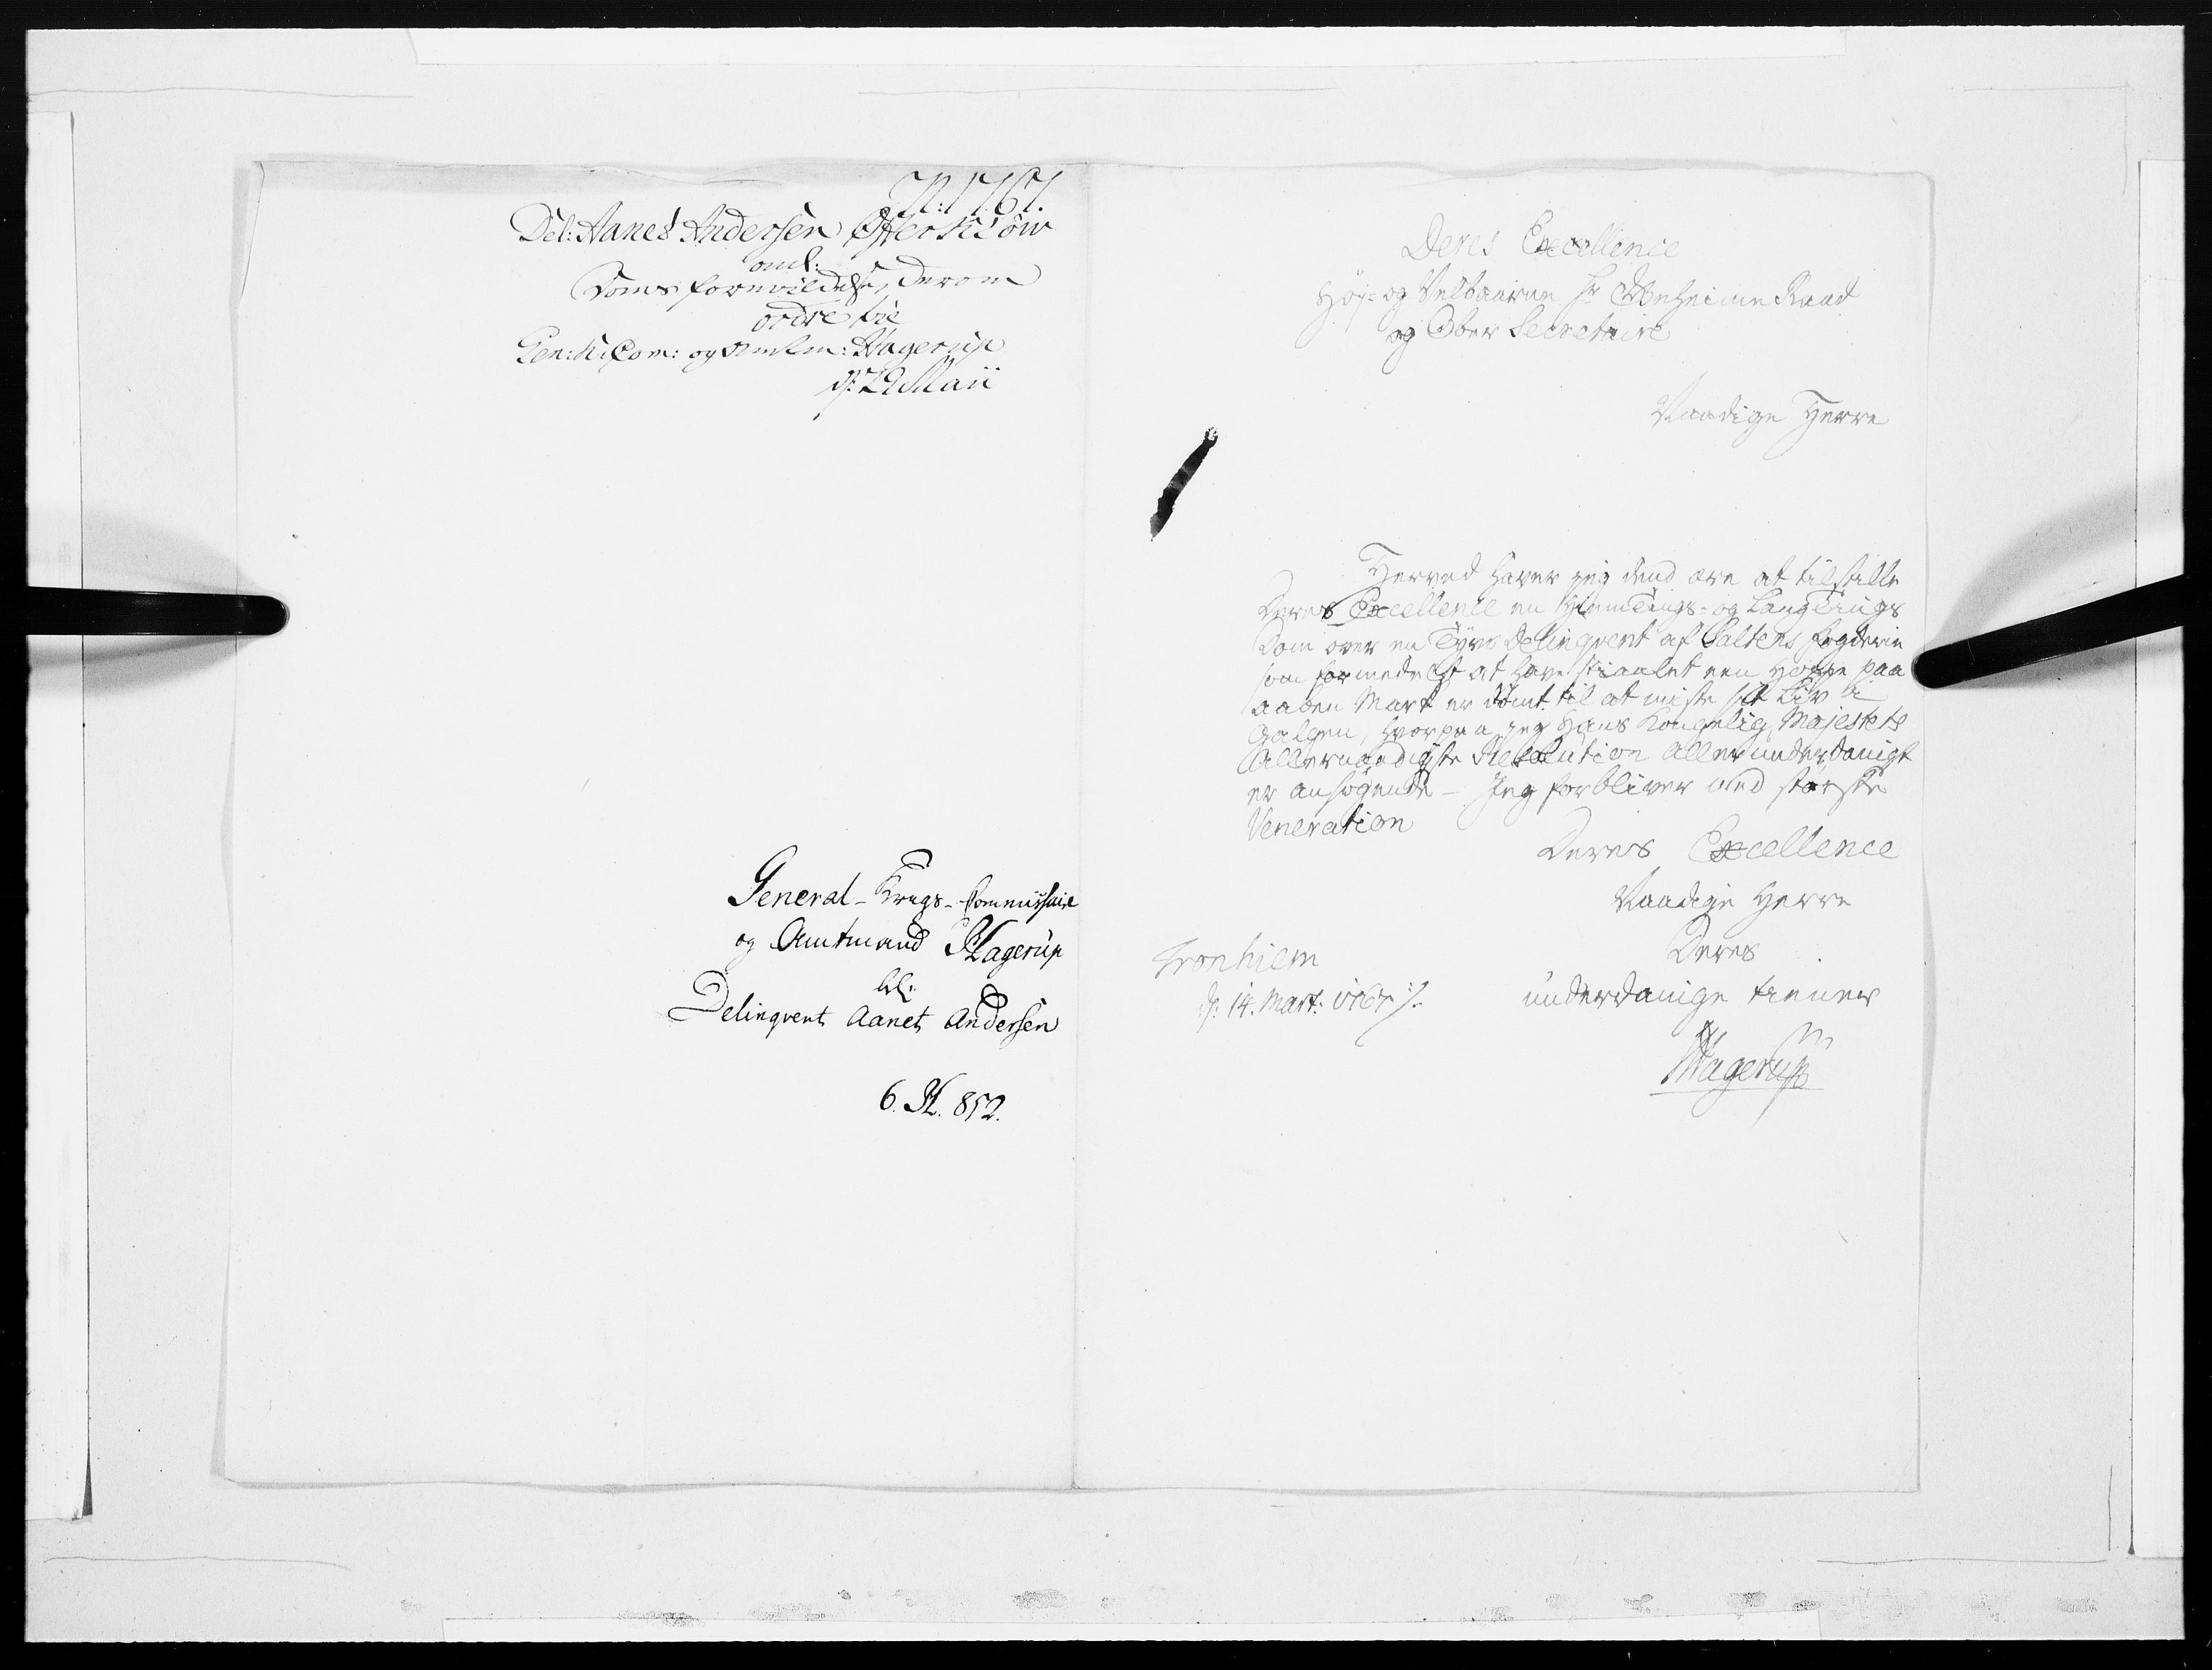 N: 1767.
Del: Aanet Andersen
anl:
Doms formildelse, derom
ordre til
Gen: K: Com: og Amtm: Hagerup
d: 29 Maii
General-Krigs-Commissaire
og Amtmand Hagerup
bl:
Delinqvent Aanet Andersen
6. H. 852.
Deres Excellence
Høj- og Velbaarne Hr Geheime Raad
og Ober Secretaire
Naadige Herre
Herved haver jeg dend ære at tilstille
Deres Excellence en Hiemtings- og Laugtings
Dom over en Tyvs Delinqvent af Saltens fogderie
som formedelst at have stiaalet een Hoppe paa
aaben Mark er dømt til at miste sit Liv i
Galgen, hvorpaa jeg Hans Kongelig Majestets
Allernaadigste Resolution allerunderdanigst
er ansøgende - Jeg forbliver med største
Veneration
Deres Excellence
Naadige Herre
Deres
underdanige tienner
Hagerup
Tronhiem
d: 14. Mart: 1767